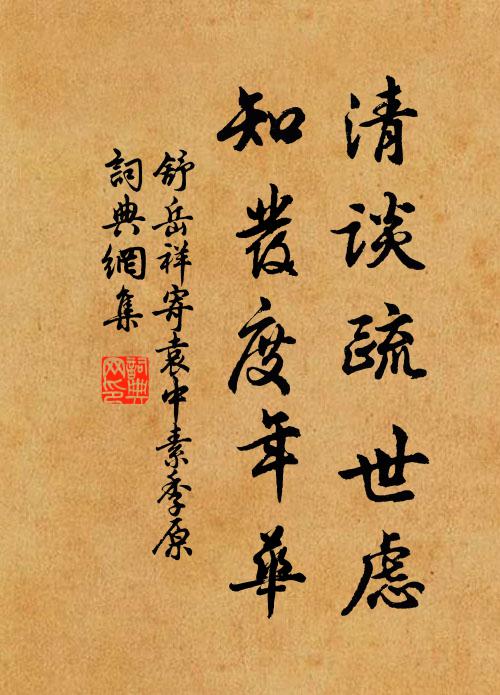 清谈疏世虑
知發度年華
舒岳祥寄袁中素季原
詞典網集
詞典網印